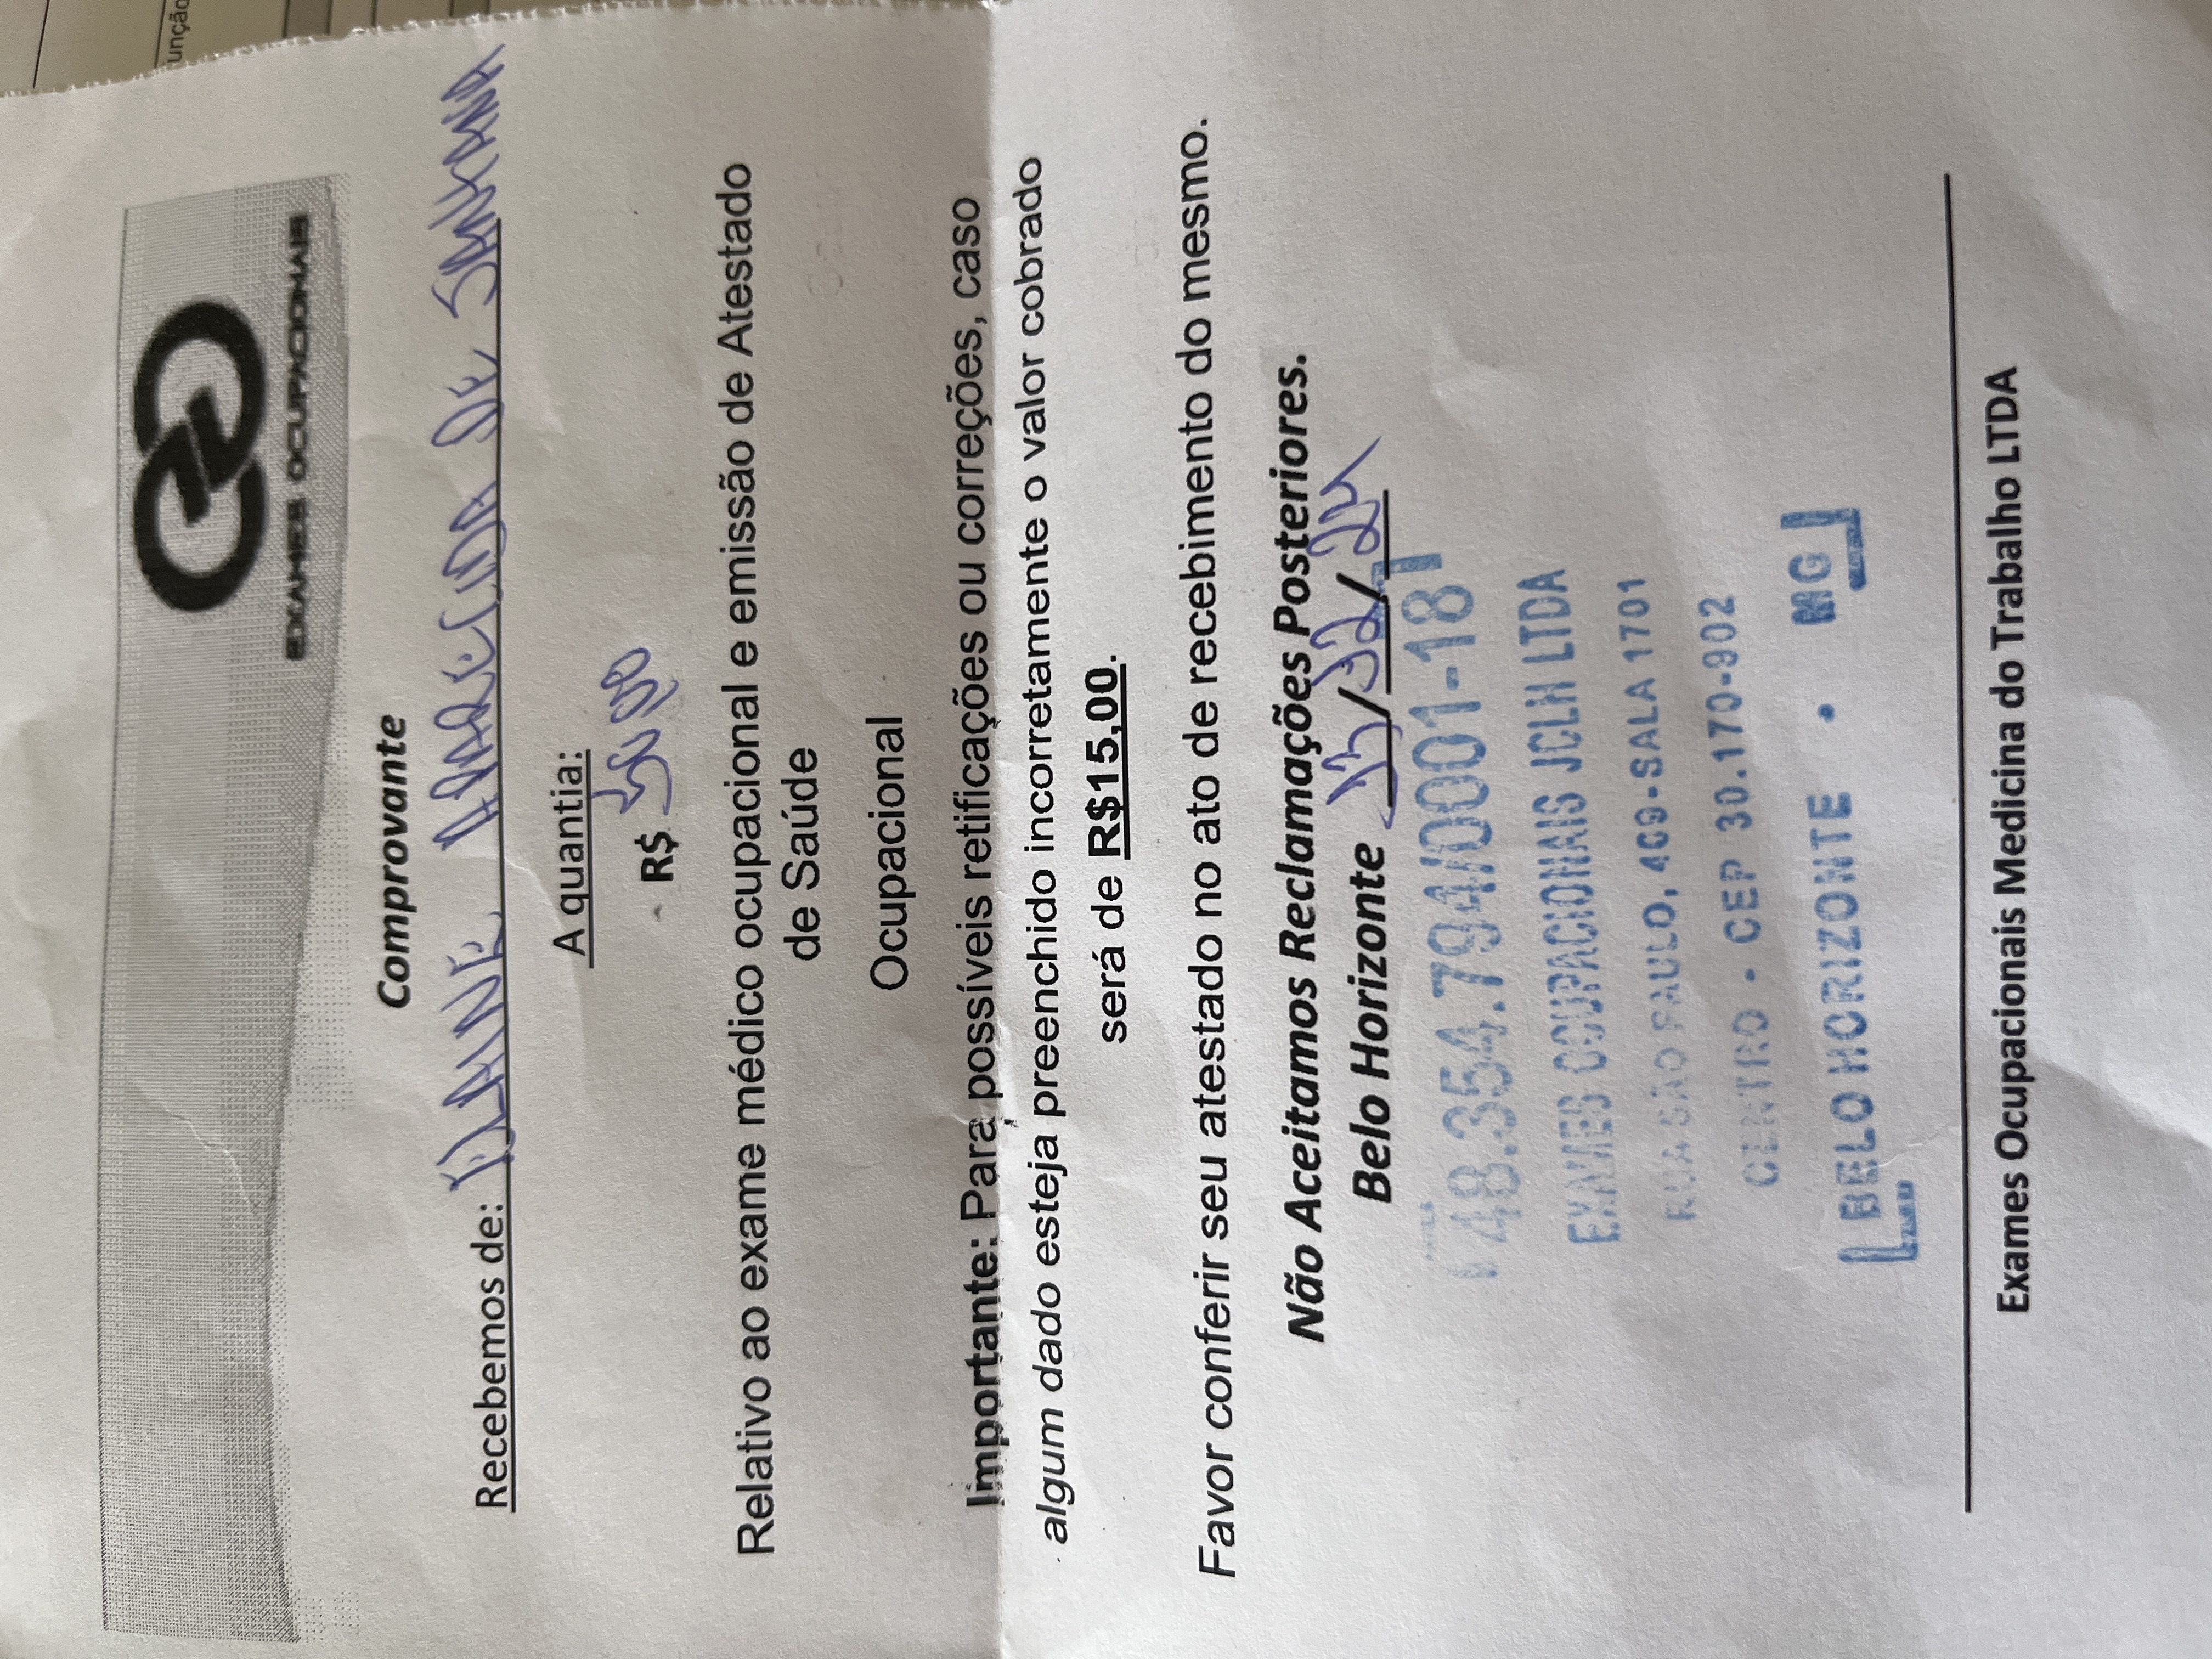 unção
EXAMES OCUPACIONAIS
Comprovante
Recebemos de: ELAINE APARECIDA DE SANTANA
A quantia:
R$ 50,00
Relativo ao exame médico ocupacional e emissão de Atestado
de Saúde
Ocupacional
Importante: Para possíveis retificações ou correções, caso
algum dado esteja preenchido incorretamente o valor cobrado
será de R$15,00.
Favor conferir seu atestado no ato de recebimento do mesmo.
Não Aceitamos Reclamações Posteriores.
Belo Horizonte 13/12/24
48.354.794/0001-18
EXAMES OCUPACIONAIS JCLH LTDA
RUA SÃO PAULO, 409-SALA 1701
CENTRO - CEP 30.170-902
BELO HORIZONTE - MG
Exames Ocupacionais Medicina do Trabalho LTDA